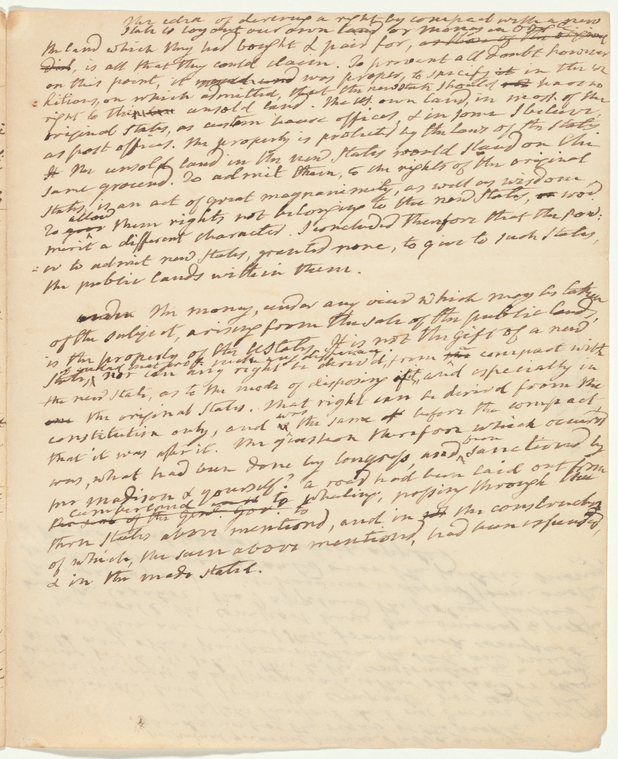 The idea of deriving a right by compact with a new
State to lay out our own land or money in
the land which they had bought & paid for,
did, is all that they could claim. To prevent all doubt however
on this point, it was proper, to specify it in the
ditions, on which admitted, that the new State should have no
right to the unsold land. The U. own land, in most of the
original States, as custom house offices, & in some I believe
as post offices. The property is protected by the laws of the State
& the unsold land in the new States would stand on the
same ground. To admit them, to the rights of the original
States, is an act of great magnanimity, as well as wisdom
To allow them rights not belonging to the new States, wod
merit a different character. I concluded therefore that the pow:
=er to admit new States, granted none, to give to such States,
the public lands within them.
under The money, under any view which may be taken
of the subject, arising from the sale of the public lands,
is the property of the UStates. It is not the gift of a new
State, nor can any right be derived, from the compact with
the new State, as to the mode of disposing of it, and especially in
the original States. That right can be derived from the
constitution only, and was the same before the compact
that it was after it. The question therefore which occurred
was, what had been done by Congress and been sanctioned by
mr Madison & yourself? a road had been laid out from
Cumberland to Wheeling, passing through the
three States above mentioned, and in the construction
of which, the sum above mentioned, had been expended,
& in the mode stated.